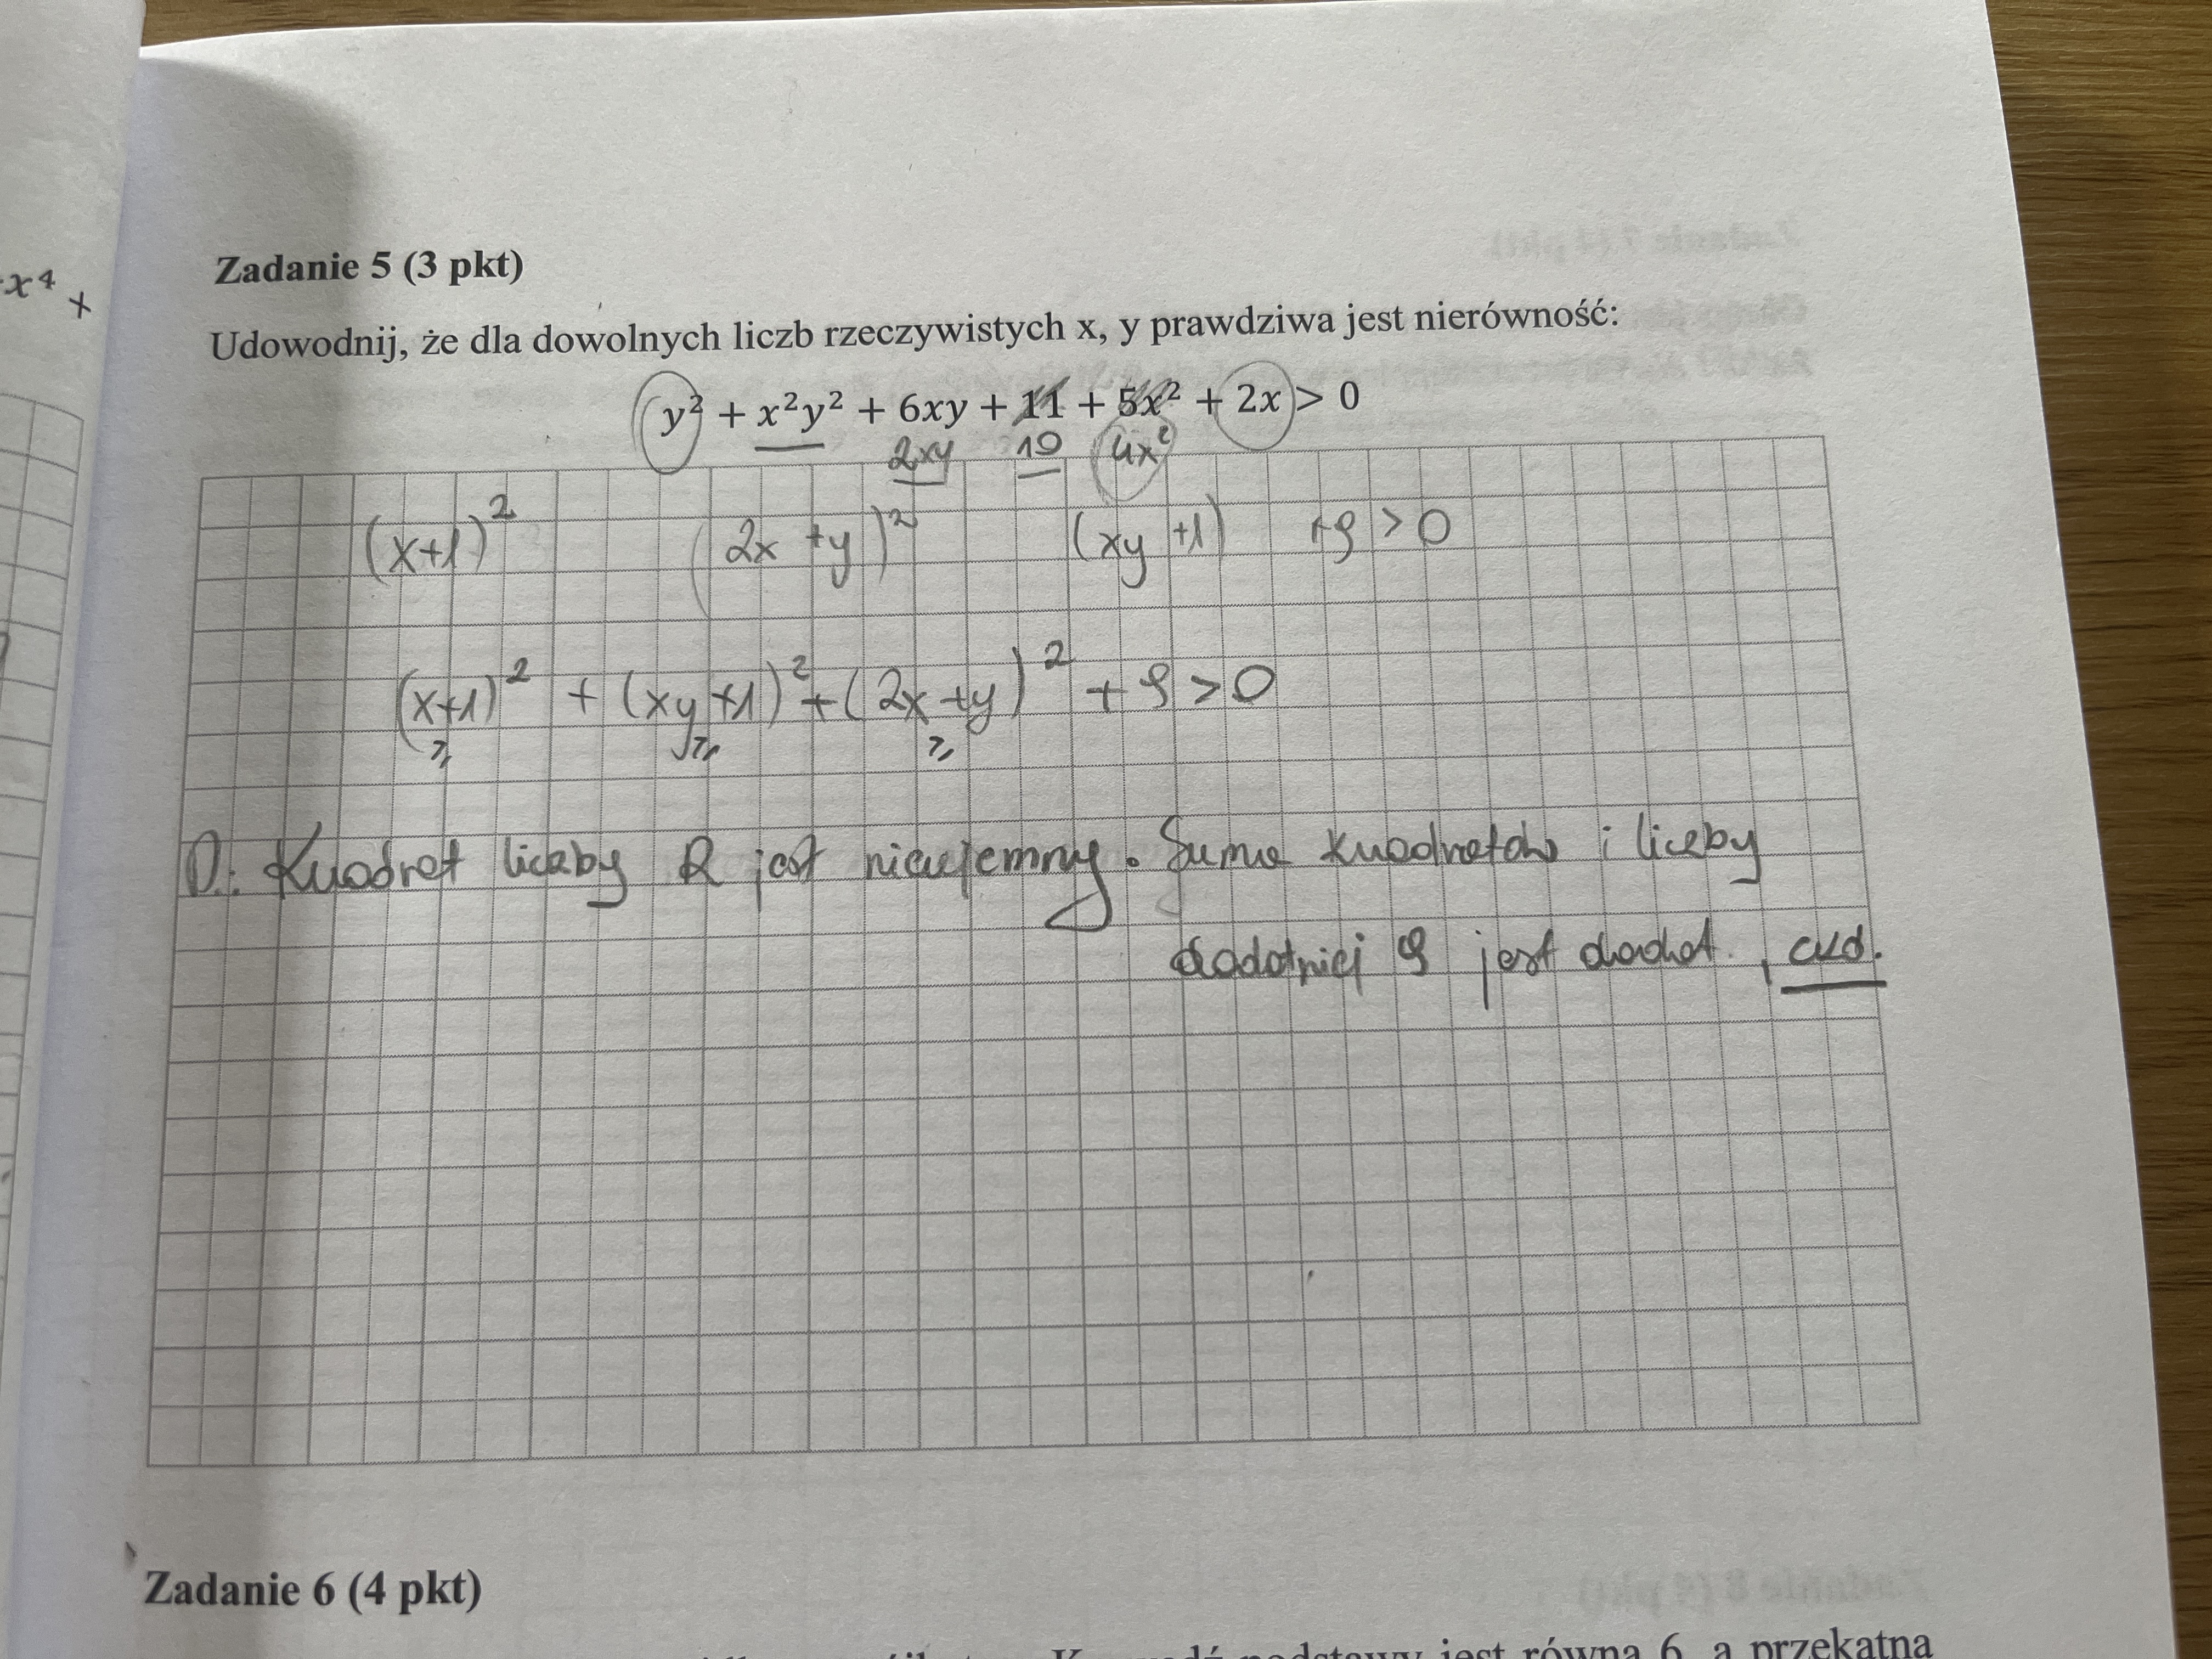 x⁴ +
Zadanie 5 (3 pkt)
Udowodnij, że dla dowolnych liczb rzeczywistych x, y prawdziwa jest nierówność:
y² + x²y² + 6xy + 11 + 5x² + 2x > 0
2xy 10 4x²
(x+1)² (2x +y)² (xy +1) +9 > 0
(x+1)² + (xy +1)² + (2x +y)² + 9 > 0
⩾ ⩾ ⩾
D: Kwadrat liczby R jest nieujemny. Suma kwadratów i liczby
dodatniej 9 jest dodat., cud.
Zadanie 6 (4 pkt)
podstawy jest równa 6, a przekątna